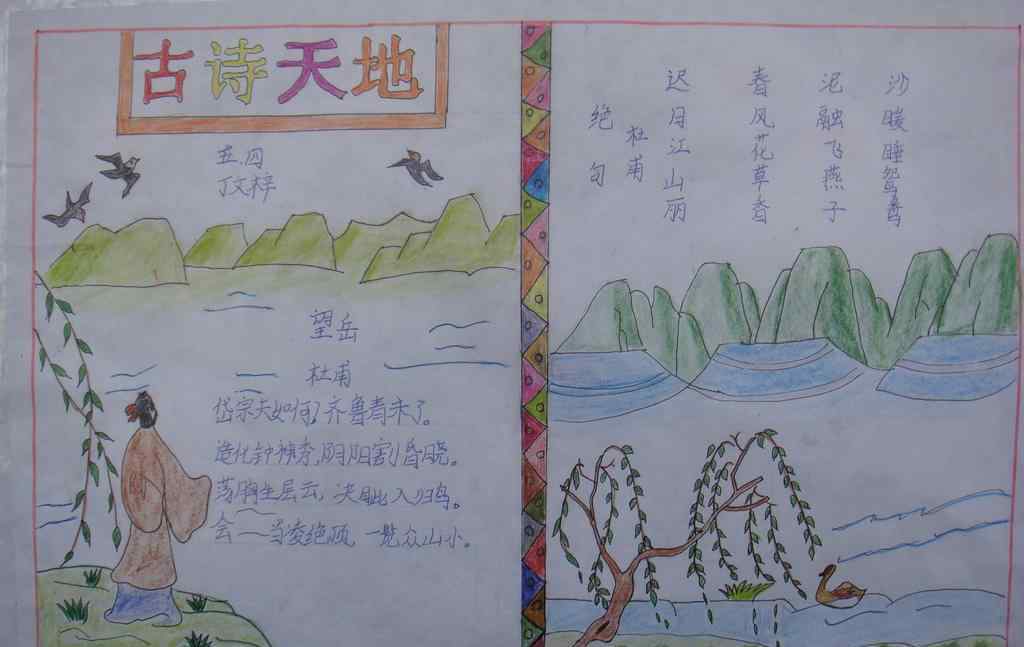 古诗天地
五.四
丁文梓
望岳
杜甫
岱宗夫如何，齐鲁青未了。
造化钟神秀，阴阳割昏晓。
荡胸生层云，决眦入归鸟。
会一当凌绝顶，一览众山小。
绝句
杜甫
迟日江山丽
春风花草香
泥融飞燕子
沙暖睡鸳鸯